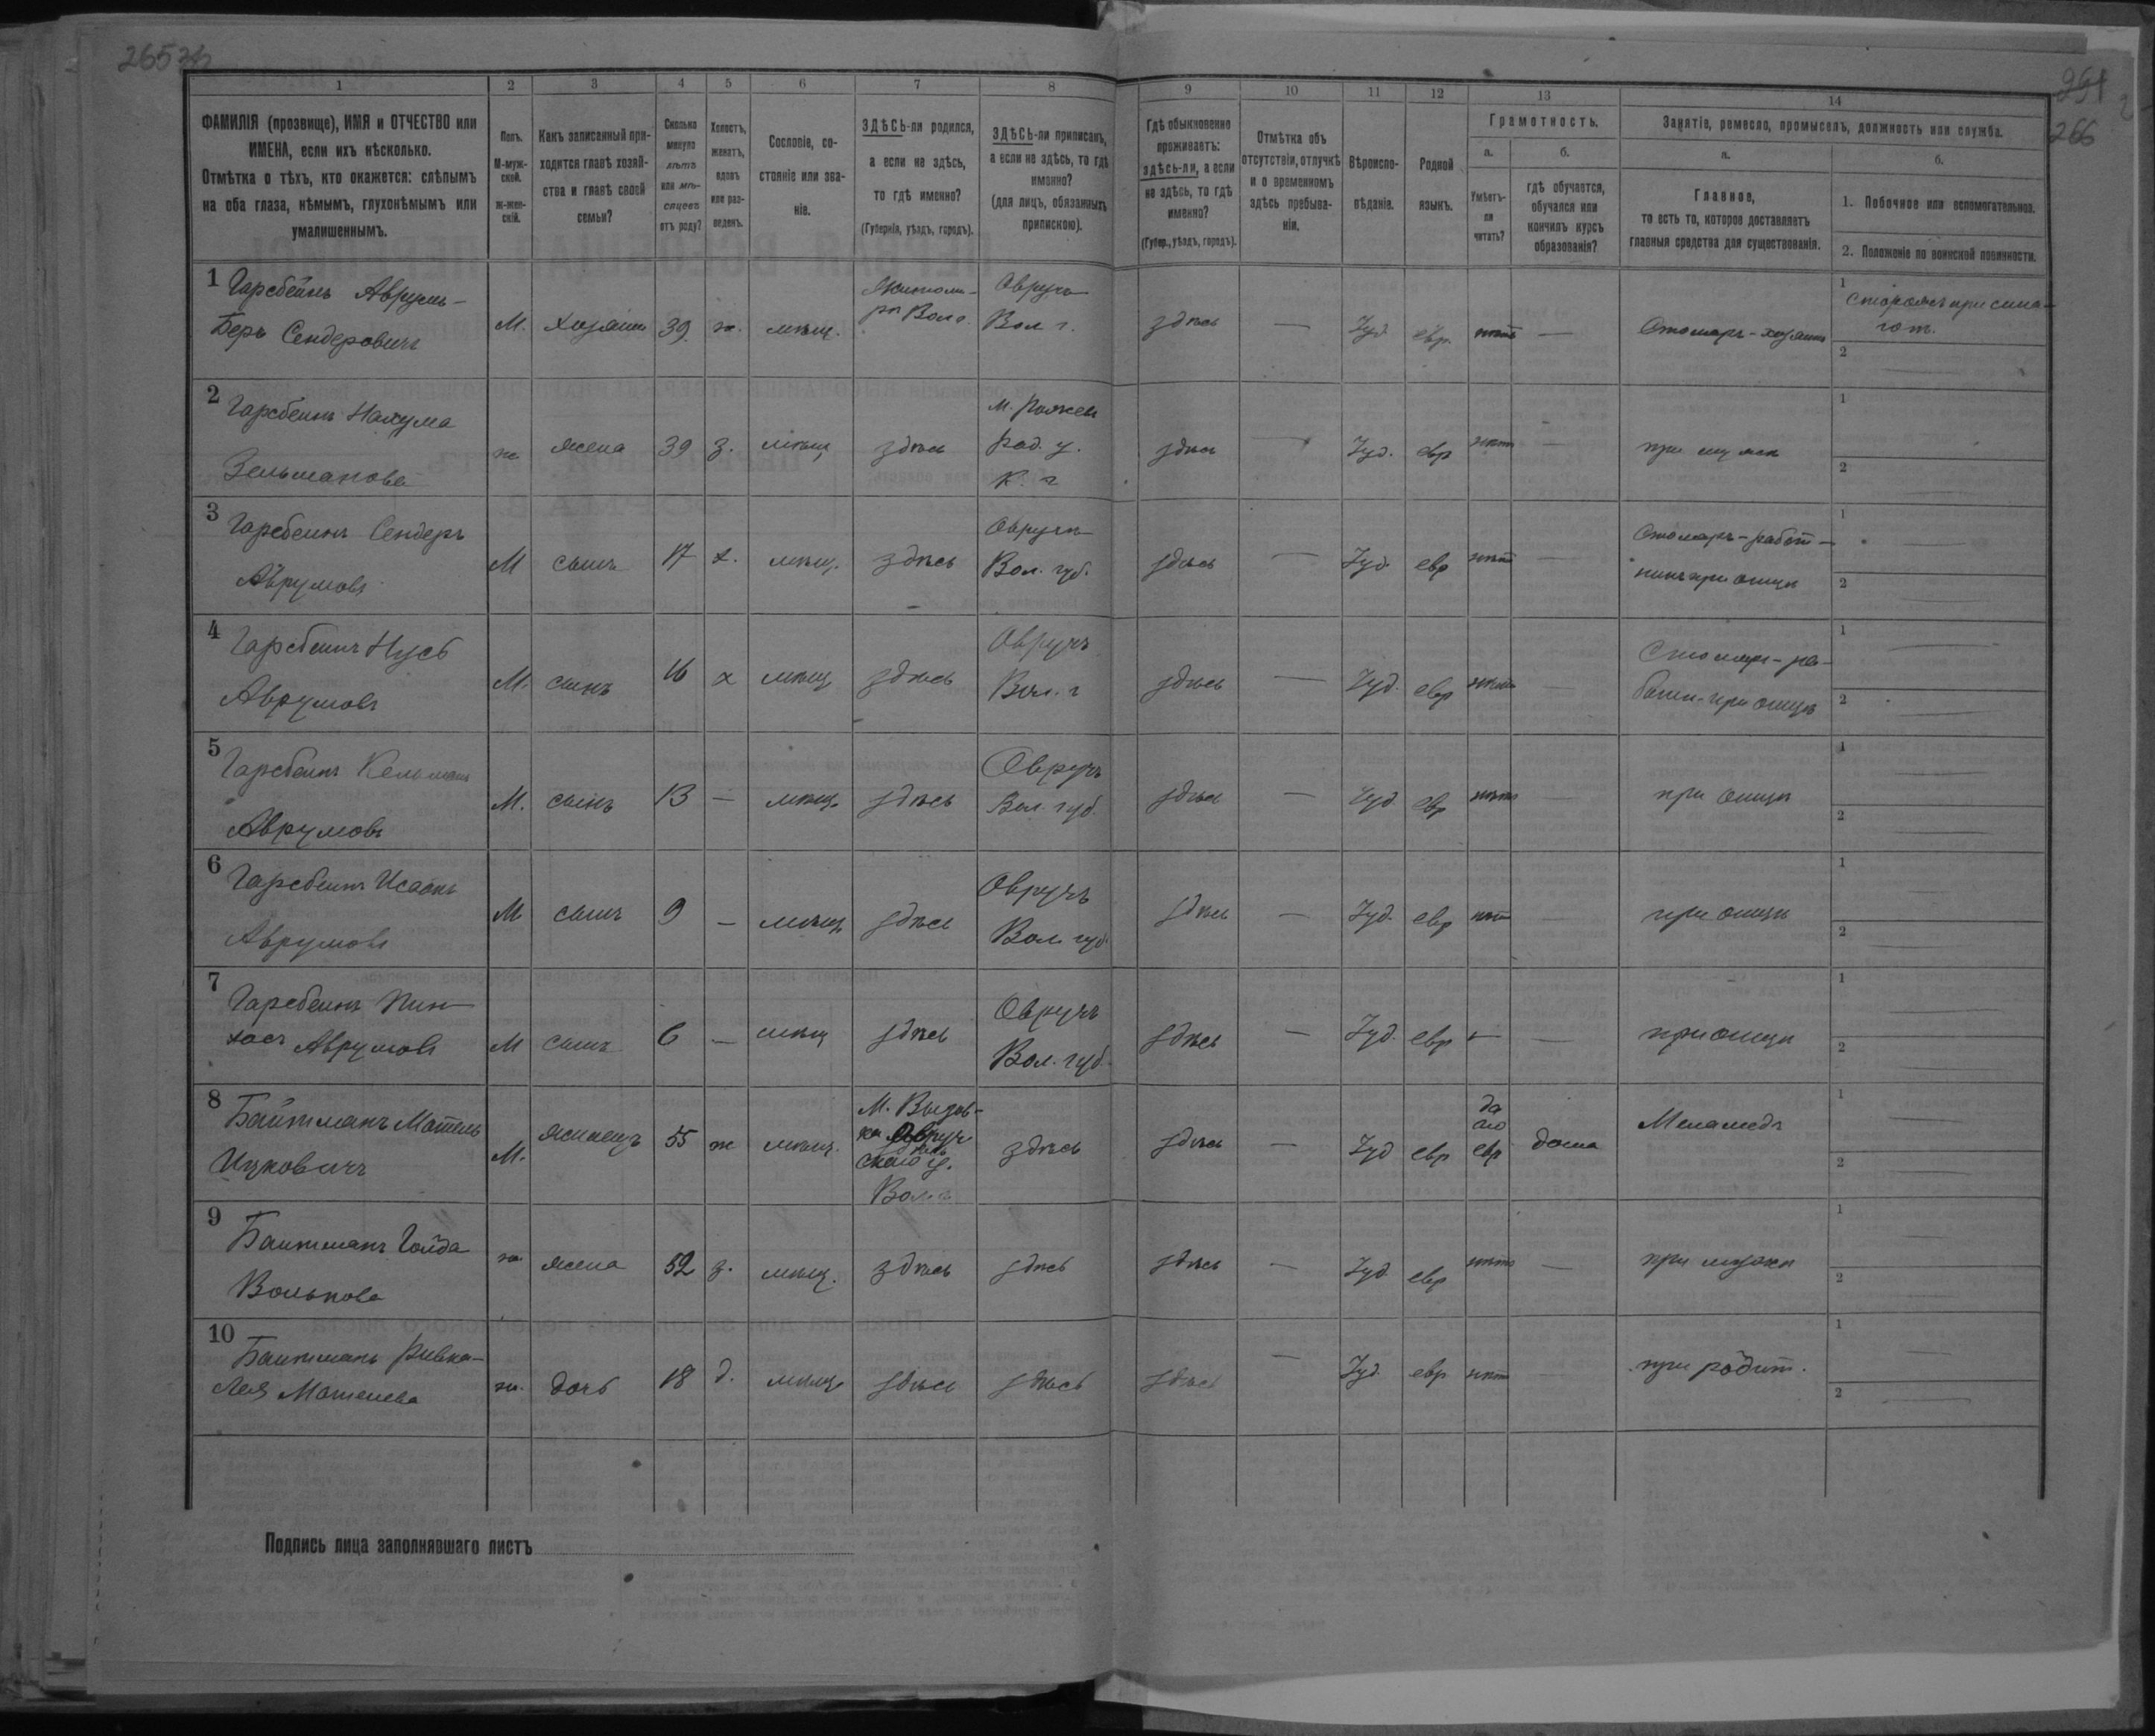 265
251
266
1
2
3
4
5
6
7
8
9
10
11
12
13
14
ФАМИЛІЯ (прозвище), ИМЯ и ОТЧЕСТВО или
ИМЕНА, если ихъ нѣсколько.
Отмѣтка о тѣхъ, кто окажется: слѣпымъ
на оба глаза, нѣмымъ, глухонѣмымъ или
умалишеннымъ.
Полъ.
М-муж-
ской.
ж-жен-
скій.
Какъ записанный при-
ходится главѣ хозяй-
ства и главѣ своей
семьи?
Сколько
минуло
лѣтъ
или мѣ-
сяцевъ
отъ роду?
Холостъ,
женатъ,
вдовъ
или раз-
веденъ.
Сословіе, со-
стояніе или зва-
ніе.
ЗДѢСЬ-ли родился,
а если не здѣсь,
то гдѣ именно?
(Губернія, уѣздъ, городъ).
ЗДѢСЬ-ли приписанъ,
а если не здѣсь, то гдѣ
именно?
(для лицъ, обязанныхъ
припискою).
Гдѣ обыкновенно
проживаетъ:
здѣсь-ли, а если
не здѣсь, то гдѣ
именно?
(Губер., уѣздъ, городъ).
Отмѣтка объ
отсутствіи, отлучкѣ
и о временномъ
здѣсь пребыва-
ніи.
Вѣроиспо-
вѣданіе.
Родной
языкъ.
Грамотность.
а.
Умѣетъ-
ли
читать?
б.
гдѣ обучается,
обучался или
кончилъ курсъ
образованія?
Занятіе, ремесло, промыселъ, должность или служба.
а.
Главное,
то есть то, которое доставляетъ
главныя средства для существованія.
б.
1. Побочное или вспомогательное.
2. Положеніе по воинской повинности.
1 Гарсбейнъ Аврумъ-
Беръ Сендеровичъ
М. хозяинъ 39 ж. мѣщ.
Житоми-
ръ Вол г.
Овручъ
Вол. г.
здѣсь — Іуд. евр. нѣтъ — Столяръ-хозяинъ
1 Сторожъ при сина-
гог.
2
2 Гарсбейнъ Нахума
Зельманова
ж жена 39 з. мѣщ здѣсь
м.
Рад. у.
К. г
здѣсь — Іуд. евр нѣтъ — при мужѣ
1
2
3 Гарсбейнъ Сендеръ
Аврумовъ
М сынъ 17 х. мѣщ. здѣсь
Овручъ
Вол. губ.
здѣсь — Іуд. евр нѣтъ —
Столяръ-работ-
никъ при отцѣ
1
2
4 Гарсбейнъ Нусь
Аврумовъ
М. сынъ 16 х мѣщ здѣсь
Овручъ
Вол. г
здѣсь — Іуд. евр нѣтъ —
Столяръ-ра-
ботн. при отцѣ
1
2
5 Гарсбейнъ Кельманъ
Аврумовъ
М. сынъ 13 — мѣщ. здѣсь
Овручъ
Вол. губ.
здѣсь — Іуд. евр нѣтъ — при отцѣ
1
2
6 Гарсбейнъ Исаакъ
Аврумовъ
М сынъ 9 — мѣщ здѣсь
Овручъ
Вол. губ
здѣсь — Іуд. евр нѣтъ — при отцѣ
1
2
7 Гарсбейнъ Пин-
хасъ Аврумовъ
М сынъ 6 — мѣщ здѣсь
Овручъ
Вол. губ.
здѣсь — Іуд. евр — — при отцѣ
1
2
8 Байтманъ Мотель
Ицковичъ
М. жилецъ 55 ж мѣщ.
М.
ского у.
Вол. г
здѣсь здѣсь — Іуд евр
да
по
евр
дома Меламедъ
1
2
9 Байтманъ Голда
Волькова
ж жена 52 з. мѣщ. здѣсь здѣсь здѣсь — Іуд. евр нѣтъ — при мужѣ
1
2
10 Байтманъ Ривка-
Лея Мотелева
ж. дочь 18 д. мѣщ здѣсь здѣсь здѣсь — Іуд. евр нѣтъ — при родит.
1
2
Подпись лица заполнявшаго листъ